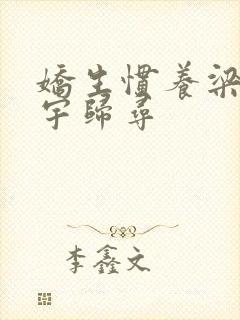 嬌生慣養梁
宇歸尋
李鑫文